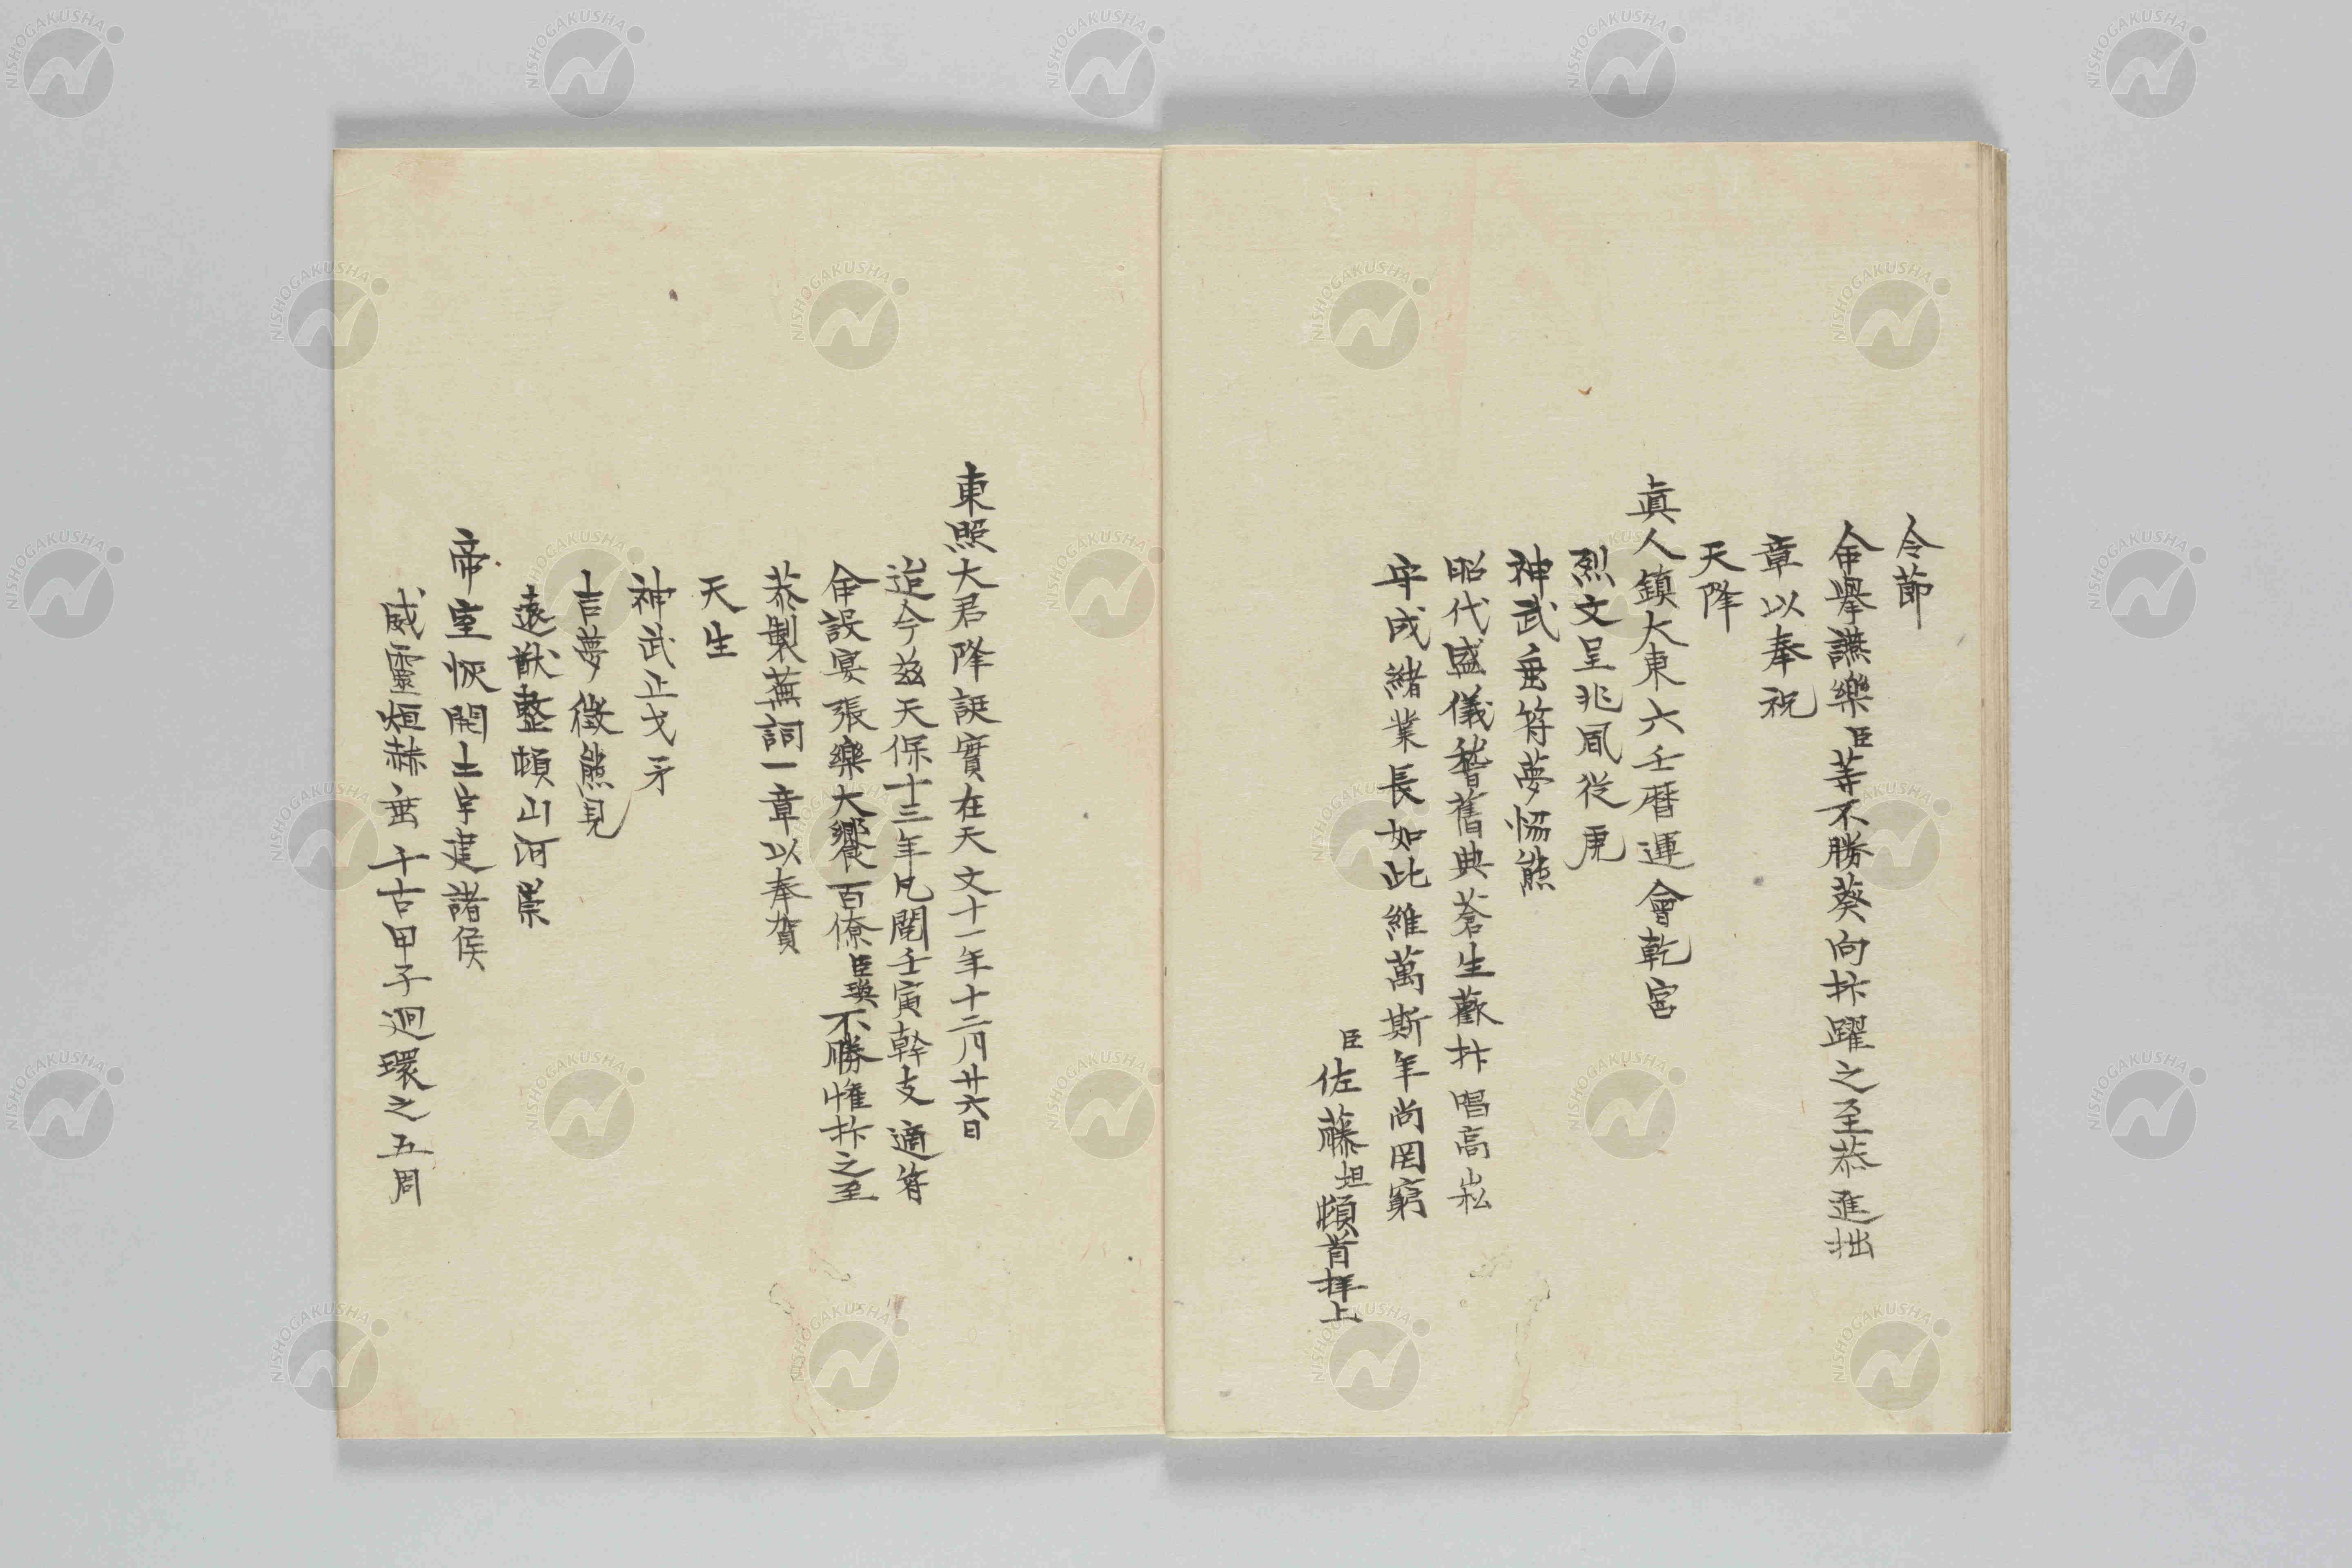 令節
命擧讌樂臣等不勝葵向抃躍之至恭進拙
章以奉祝
天降
眞人鎮大東六壬暦運會乾宮
烈文呈兆風從虎
神武垂符夢協熊
昭代盛儀稽舊典蒼生歡抃唱高崧
守成緒業長如此維萬斯年尚罔窮
臣佐藤坦頓首拝上
東照大君降誕實在天文十一年十二月廿六日
迨今茲天保十三年凡閲壬寅幹支適符
命設宴張樂大饗百僚臣瑛不勝懽抃之至
恭製蕪詞一章以奉賀
天生
神武止戈矛
吉夢徴熊見
遠猷整頓山河業
帝室恢開土宇建諸侯
威靈烜赫垂千古甲子迴環之五周
NISHOGAKUSHA